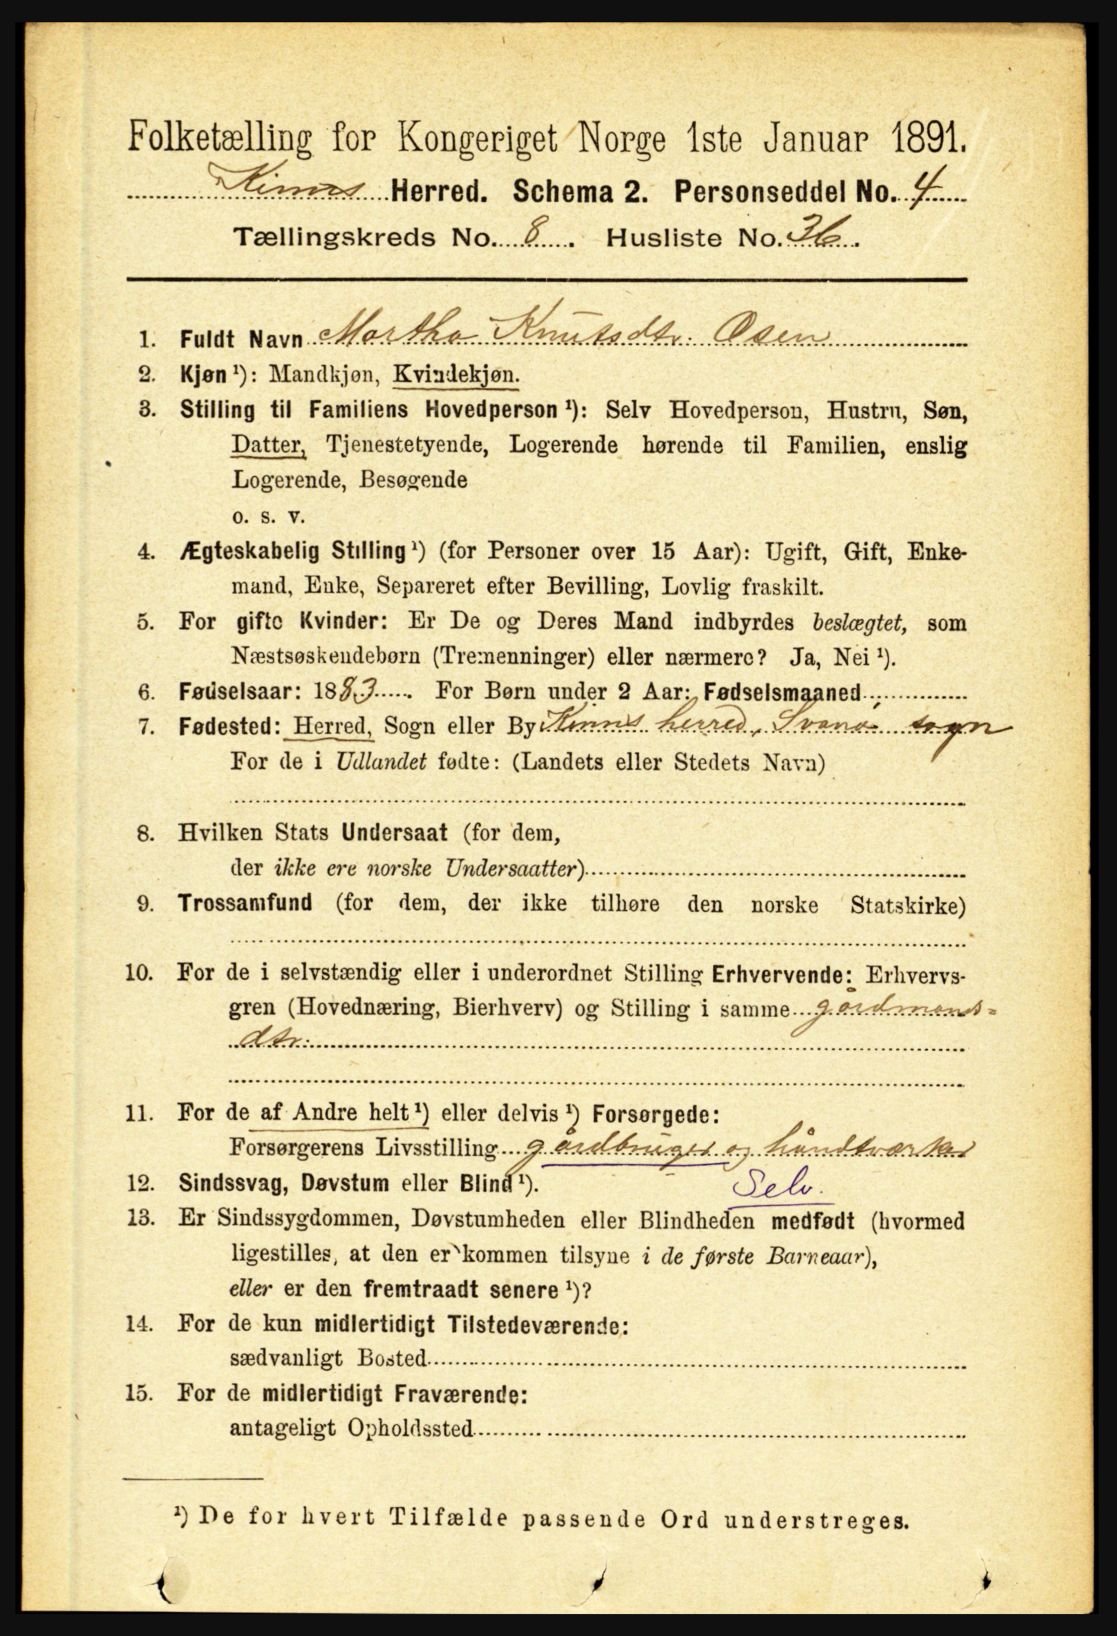 Folketælling for Kongeriget Norge 1ste Januar 1891.
Kinns Herred. Schema 2. Personseddel No. 4
Tællingskreds No. 8. Husliste No. 36.
1. Fuldt Navn Martha Knutsdtr. Osen
2. Kjøn ¹): Mandkjøn, Kvindekjøn.
3. Stilling til Familiens Hovedperson ¹): Selv Hovedperson, Hustru, Søn,
Datter, Tjenestetyende, Logerende hørende til Familien, enslig
Logerende, Besøgende
o. s. v.
4. Ægteskabelig Stilling ¹) (for Personer over 15 Aar): Ugift, Gift, Enke-
mand, Enke, Separeret efter Bevilling, Lovlig fraskilt.
5. For gifte Kvinder: Er De og Deres Mand indbyrdes beslægtet, som
Næstsøskendebørn (Tremenninger) eller nærmere? Ja, Nei ¹).
6. Fødselsaar: 1883. For Børn under 2 Aar: Fødselsmaaned
7. Fødested: Herred, Sogn eller By Kinns herred, Svanø sogn
For de i Udlandet fødte: (Landets eller Stedets Navn)
8. Hvilken Stats Undersaat (for dem,
der ikke ere norske Undersaatter)
9. Trossamfund (for dem, der ikke tilhøre den norske Statskirke)
10. For de i selvstændig eller i underordnet Stilling Erhvervende: Erhvervs-
gren (Hovednæring, Bierhverv) og Stilling i samme gårdmands-
dtr.
11. For de af Andre helt ¹) eller delvis ¹) Forsørgede:
Forsørgerens Livsstilling gårdbruger og håndtværker
12. Sindssvag, Døvstum eller Blind ¹). Selv.
13. Er Sindssygdommen, Døvstumheden eller Blindheden medfødt (hvormed
ligestilles, at den er kommen tilsyne i de første Barneaar),
eller er den fremtraadt senere ¹)?
14. For de kun midlertidigt Tilstedeværende:
sædvanligt Bosted
15. For de midlertidigt Fraværende:
antageligt Opholdssted
¹) De for hvert Tilfælde passende Ord understreges.